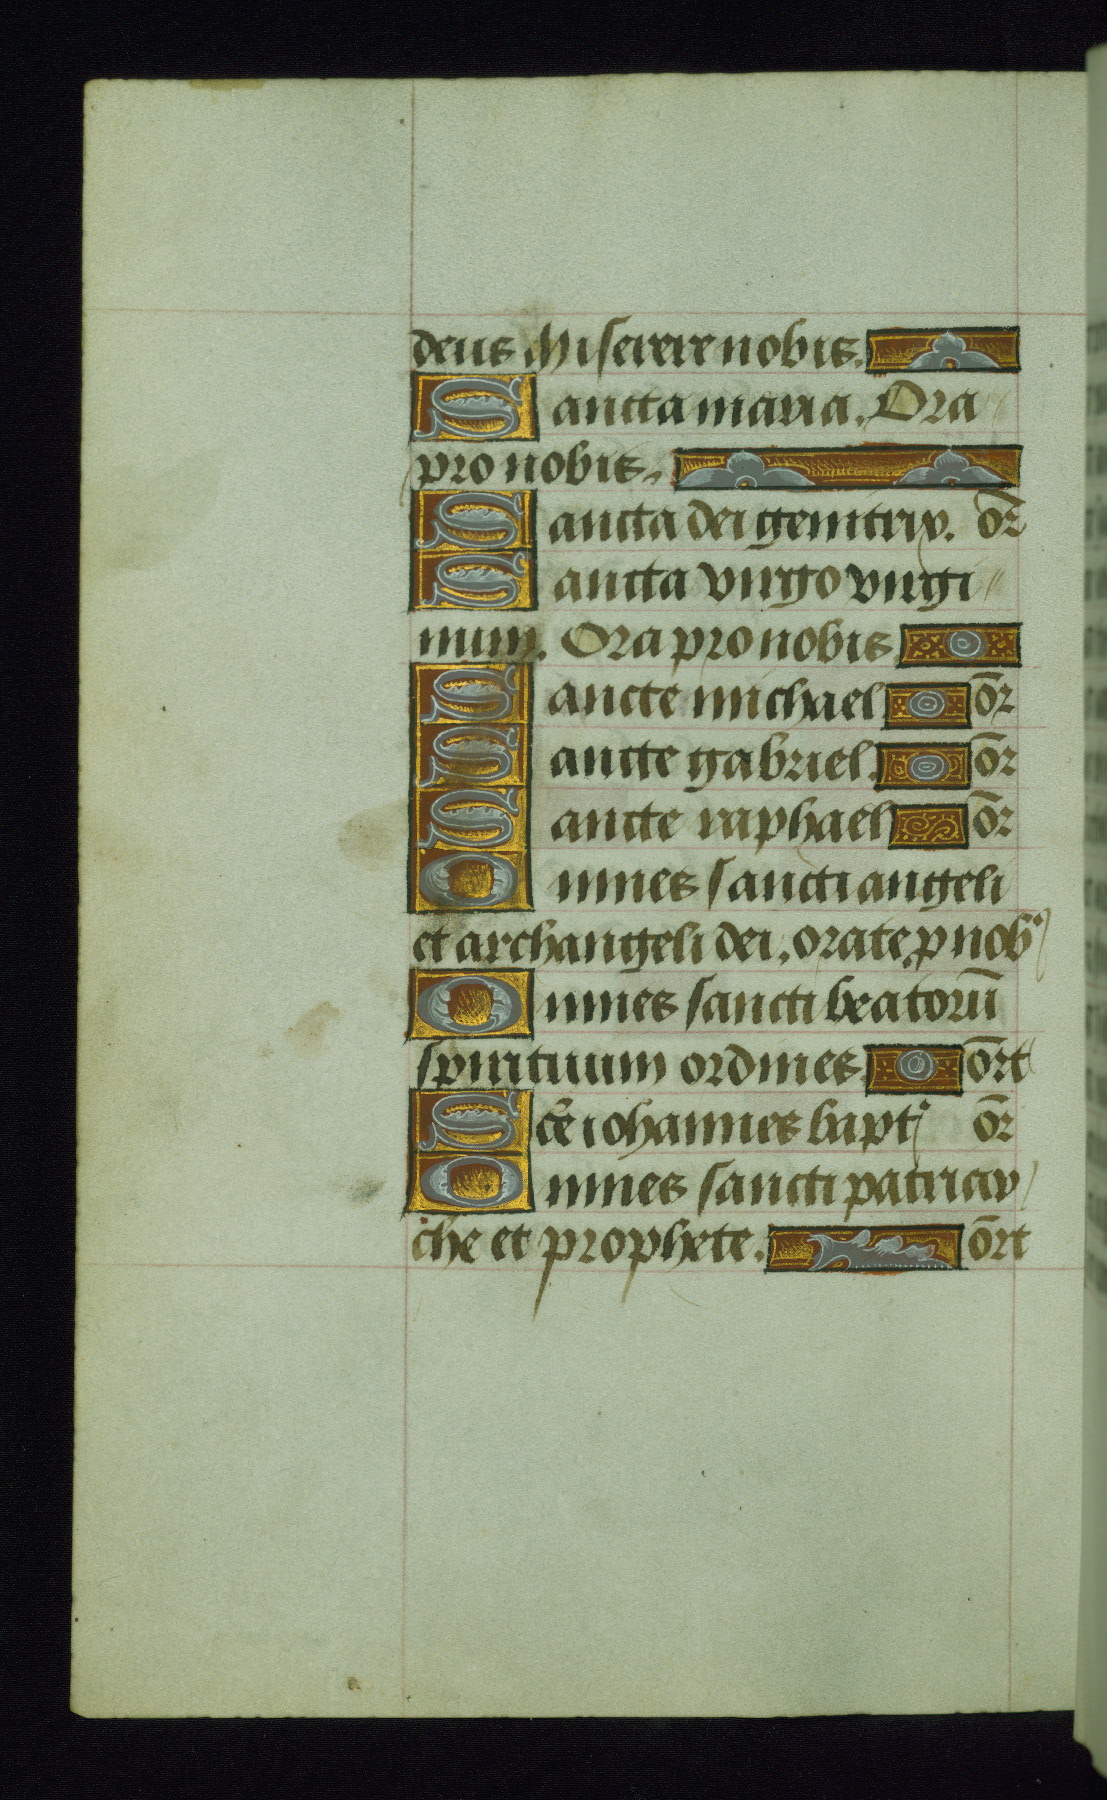 deus Miserere nobis.
Sancta maria. Ora
pro nobis.
Sancta dei genitrix. or̄
Sancta virgo virgi
num. Ora pro nobis
Sancte michael or̄
Sancte gabriel. or̄
Sancte raphael or̄
Omnes sancti angeli
et archangeli dei, orate ꝓ nob⁹
Omnes sancti beatorū
spirituum ordines or̄t
Scē iohannes bapt. or̄
Omnes sancti patriar
che et prophete. or̄t